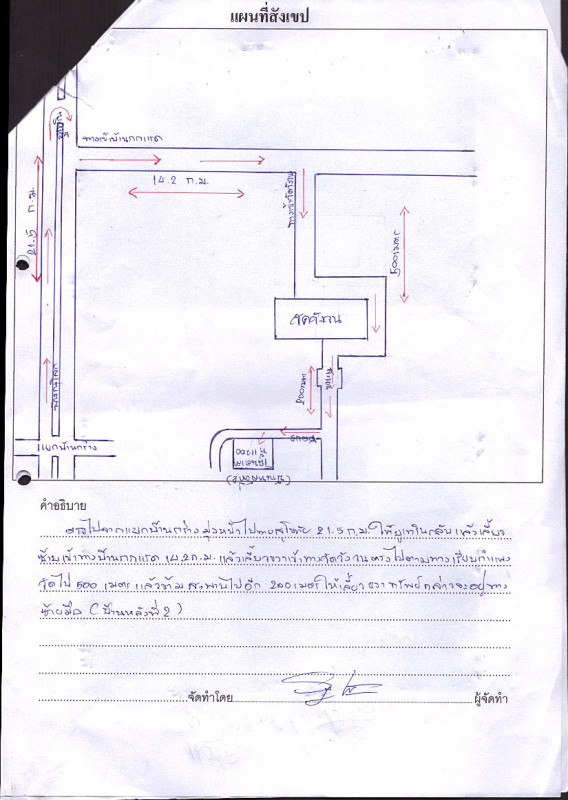 แผนที่สังเขป
ทางเข้าบ้านกกแรต
14.2 ก.ม.
21.5 ก.ม.
ทางเข้าวัดวังวน
วัดวังวน
สะพาน
แยกบ้านกร่าง
(บ้านหลังที่ 2)
คำอธิบาย
ตรงไปจากแยกบ้านกร่างมุ่งหน้าไปทางสุโขทัย 21.5 ก.ม. ให้ยูเทิร์นกลับ แล้วเลี้ยว
ซ้ายเข้าทางบ้านกกแรต 14.2 ก.ม. แล้วเลี้ยวขวาเข้าทางวัดวังวนตรงไปตามทางเรียบกำแพง
วัดไป 500 เมตร แล้วข้ามสะพานไปอีก 200 เมตร ให้เลี้ยวขวา ทรัพย์กล่าวจะอยู่ทาง
ซ้ายมือ (บ้านหลังที่ 2)
จัดทำโดย ผู้จัดทำ